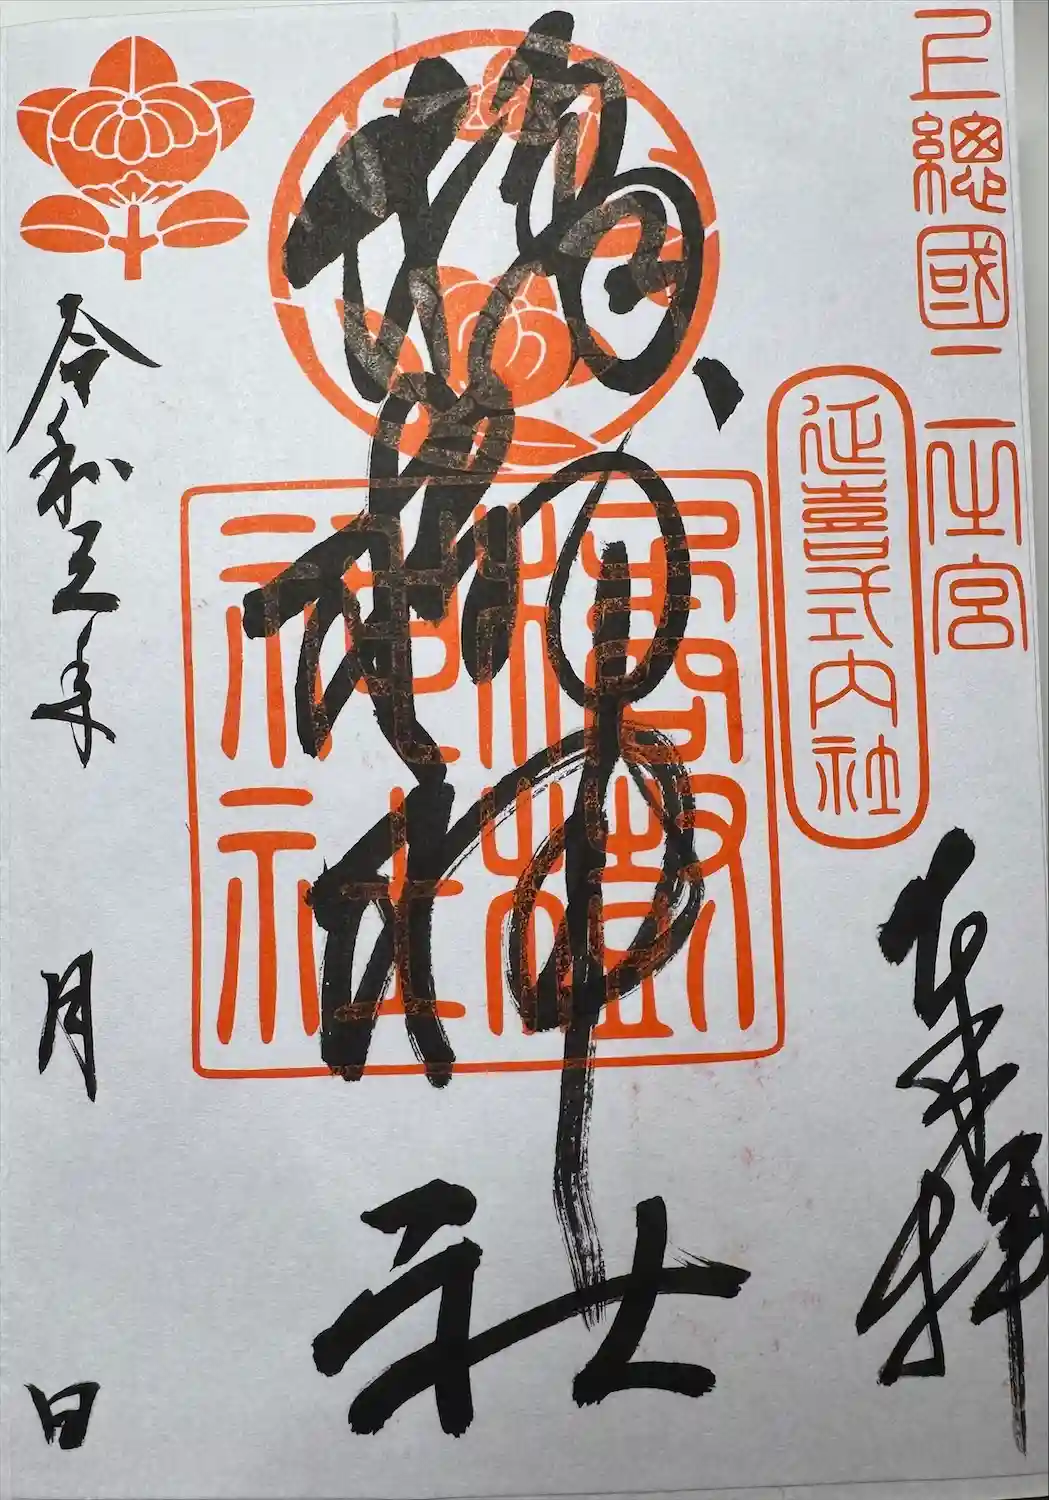 上總國二之宮
延喜式内社
奉拝
橘樹神社
橘樹
神社
令和五年
月
日